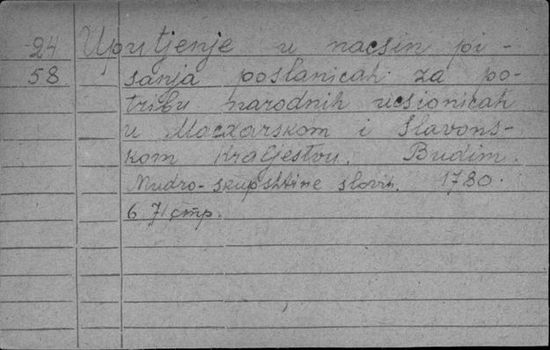 24 Uputjenje u nacsin pi-
58 sanja poslanicah za po-
tribu narodnih ucsionicah
u Madxarskom i Slavons-
kom Kraljestvu. Budim.
Mudro-skupshtine slovih. 1780.
671 стр.